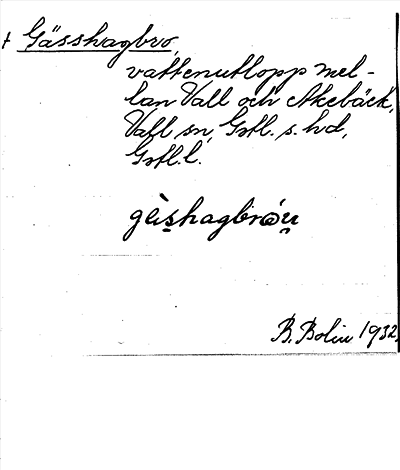 + Gässhagbro,
vattenutlopp mel-
lan Vall och Akebäck,
Vall sn, Gotl. s. hd,
Gotl. l.
gèi̯shagbrὼu̯
B. Bolin 1932.